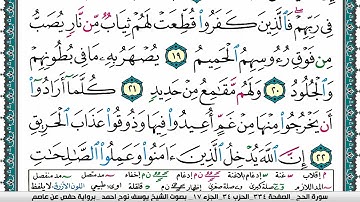 فِى رَبِّهِمْ ۖ فَالَّذِينَ كَفَرُوا۟ قُطِّعَتْ لَهُمْ ثِيَابٌ مِّن نَّارٍ يُصَبُّ
مِن فَوْقِ رُءُوسِهِمُ ٱلْحَمِيمُ ١٩ يُصْهَرُ بِهِۦ مَا فِى بُطُونِهِمْ
وَٱلْجُلُودُ ٢٠ وَلَهُم مَّقَـٰمِعُ مِنْ حَدِيدٍ ٢١ كُلَّمَآ أَرَادُوٓا۟
أَن يَخْرُجُوا۟ مِنْهَا مِنْ غَمٍّ أُعِيدُوا۟ فِيهَا وَذُوقُوا۟ عَذَابَ ٱلْحَرِيقِ
٢٢ إِنَّ ٱللَّهَ يُدْخِلُ ٱلَّذِينَ ءَامَنُوا۟ وَعَمِلُوا۟ ٱلصَّـٰلِحَـٰتِ
سورة الحج الصفحة ٣٣٤ الحزب ٣٤ الجزء ١٧ بصوت الشيخ يوسف نوح احمد برواية حفص عن عاصم